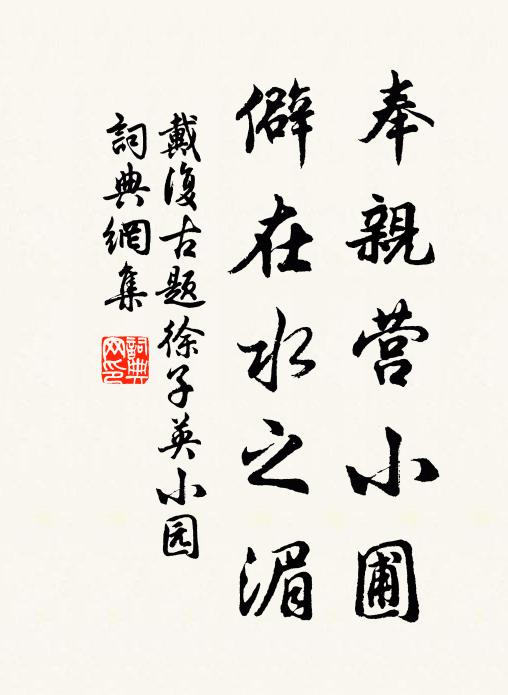 奉親营小圃
僻在水之湄
戴復古题徐子英小园
詞典網集
詞典
网印